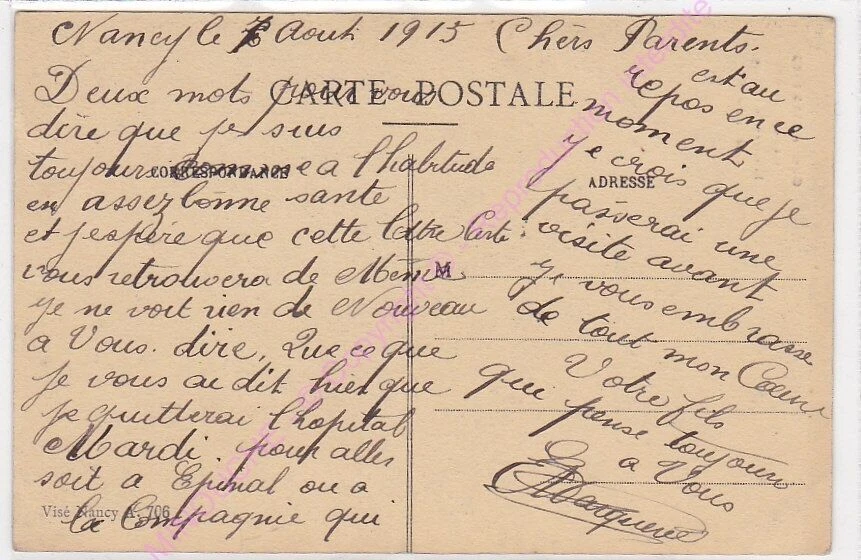 Nancy le 7 Aout 1915 Chers Parents.
CARTE POSTALE
CORRESPONDANCE
ADRESSE
Deux mots pour vous
dire que je suis
toujours comme a l'habitude
en assez bonne sante
et j'espère que cette Lettre Carte
vous retrouvera de Même
je ne voit rien de Nouveau
a Vous dire, Que ce que
je vous ai dit hier que
je quitterai l'hopital
Mardi. pour aller
soit a Epinal ou a
la Compagnie qui
est au
repos en ce
moment
je crois que je
passerai une
visite avant
je vous embrasse
de tout mon Coeur
Votre fils
qui pense toujours
a Vous
M
Visé Nancy A. 706